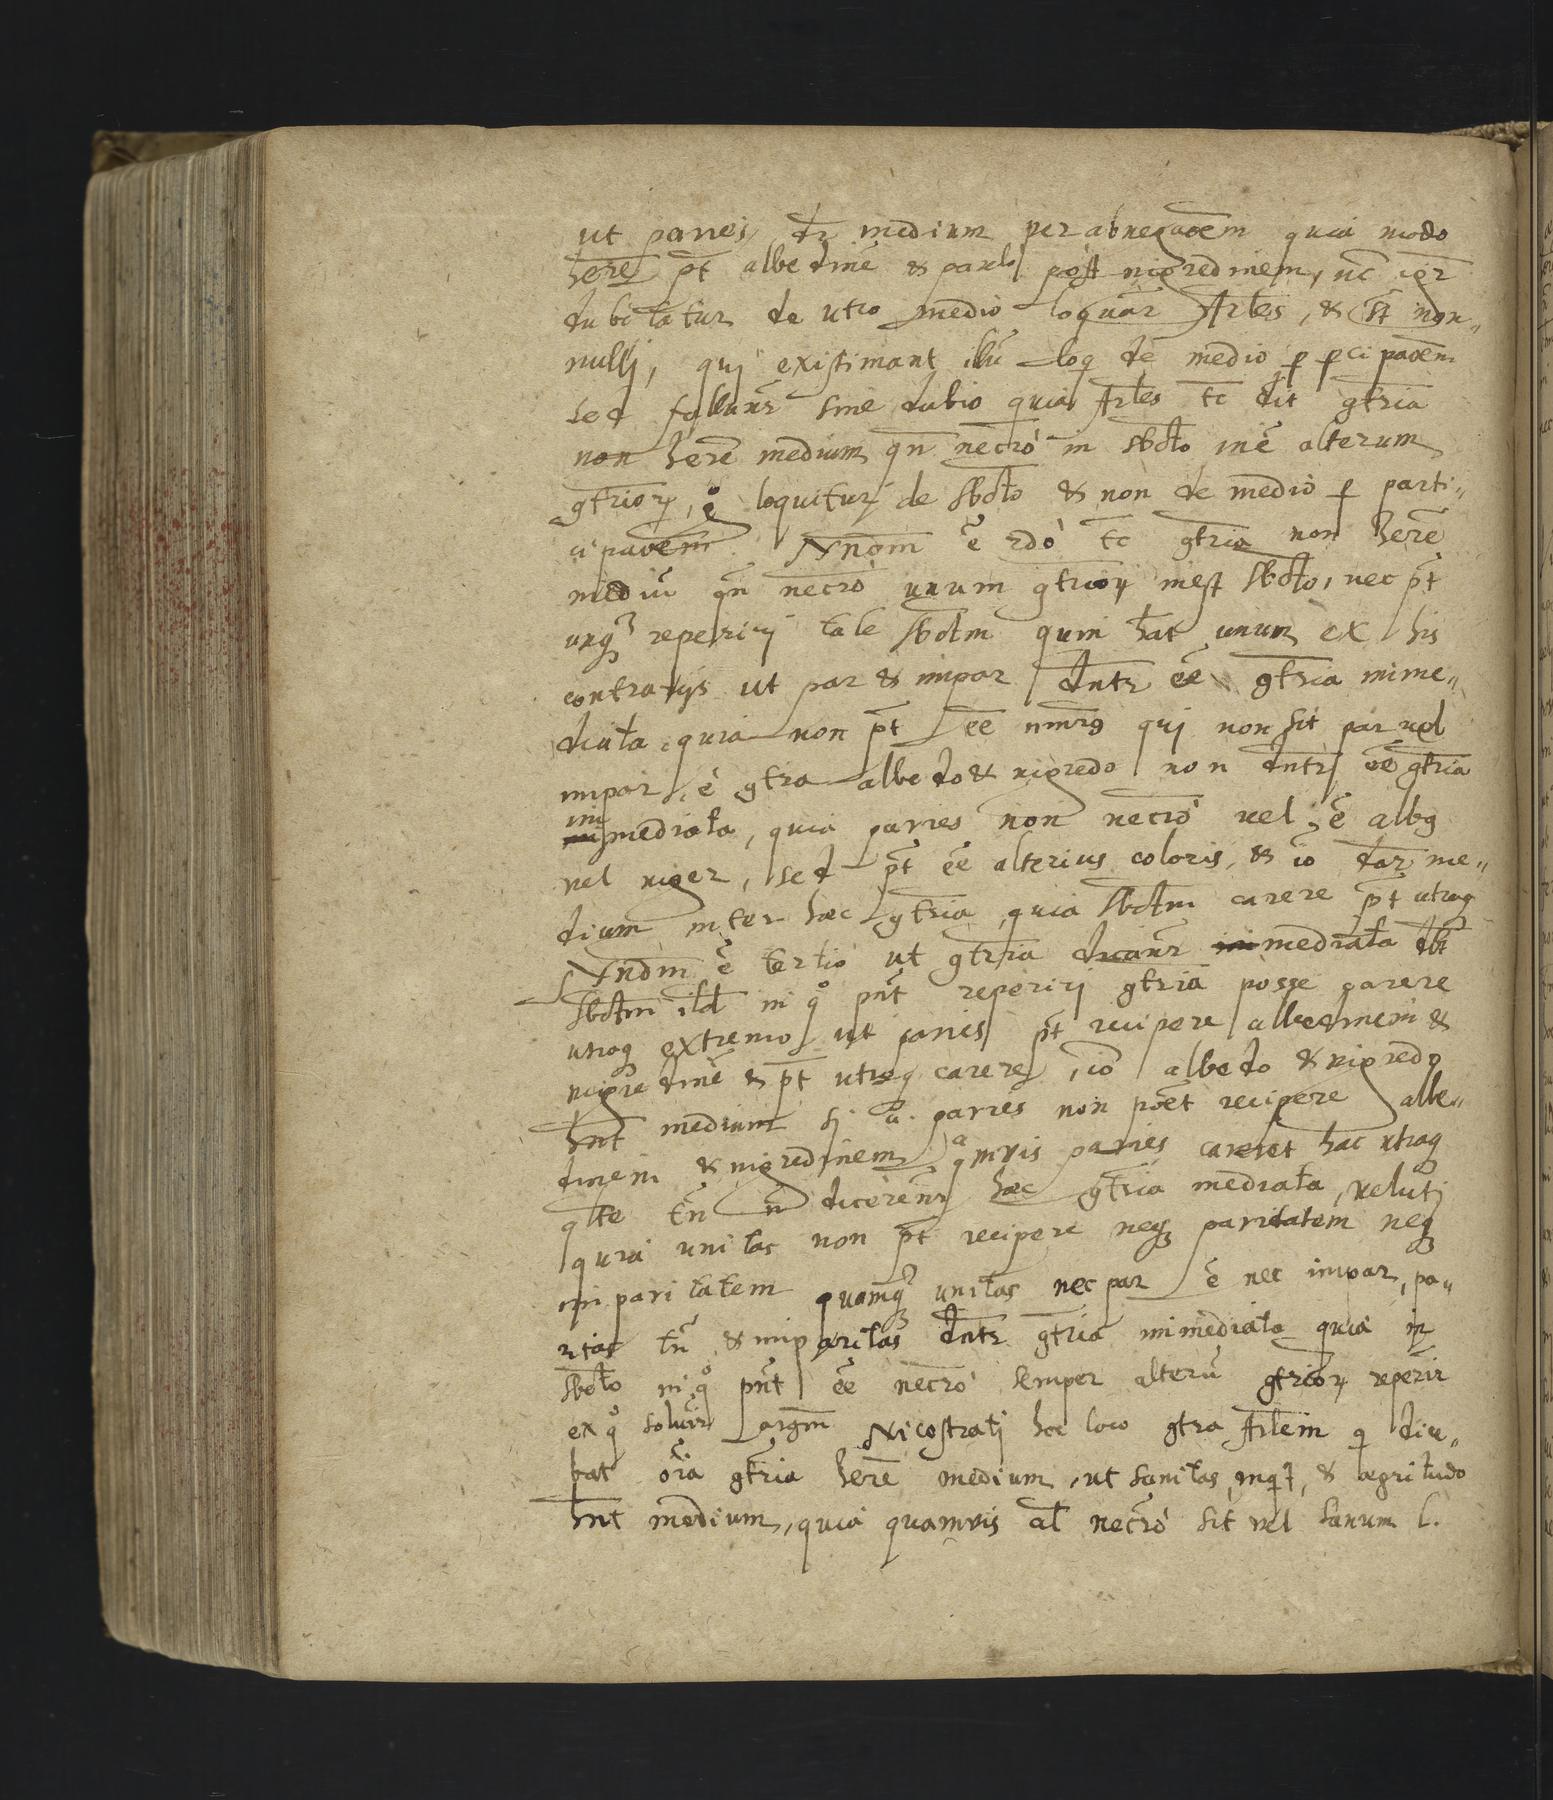 ut paries dr medium per abnegaōem quia modo
here pt albedinē & paulo post nigredinem, nc igr
dubitatur de utro medio loquar̄ Arles, & st̄ non„
nullj, quj existimant illū loq de medio p pcipaōem
sed fallunr̄ sine dubio quia Arles tc dit gtria
non here medium qn necrò in sbcto inē alterum
gtrior, g° loquitur de sbcto & non de medio p parti„
cipaōem Nnam ē 2do tc gtria non here
mediū qn necrò unum gtrior inest sbcto, nec pt
unq̄ reperirj tale sbctm quin hat unum ex his
contrarijs ut par & impar dntr ēe gtria imme„
diata, quia non pt ēe nmrg quj non sit par vel
impar, è gtra albedo & nigredo non dntr ēe gtria
im
mediata, quia paries non necrò vel ē albg
vel niger, sed pt ēe alterius coloris, & io dar me„
dium inter hæc gtria, quia sbctm carere pt utroq
Nndm ē tertiò ut gtria dicanr̄ mediata dbt
sbctm ild in q° pnt reperirj gtria posse carere
utroq extremo ut paries pt recipere albedinem &
nigredinē & pt utroq carere, io albedo & nigredo
hnt medium sj u. paries non poēt recipere albe„
dinem & nigredinem qamvis paries careret hac utraq
qlte tn n̄ dicerenr hæc gtria mediata, velutj
quia unitas non pt recipere neq paritatem neq
imparitatem quamq unitas nec par ē nec impar, pa„
ritas tn & imparitas dntr gtria immediata quia in
sbcto in q° pnt ēe necrò semper alterū gtrior reperir
ex q° solvir argm Nicostratj hoc loco gtra Arlem q dice„
bat oīa gtria herē medium, ut sanitas, inqt, & ægritudo
hnt medium, quia quamvis al necrò sit vel sanum l.